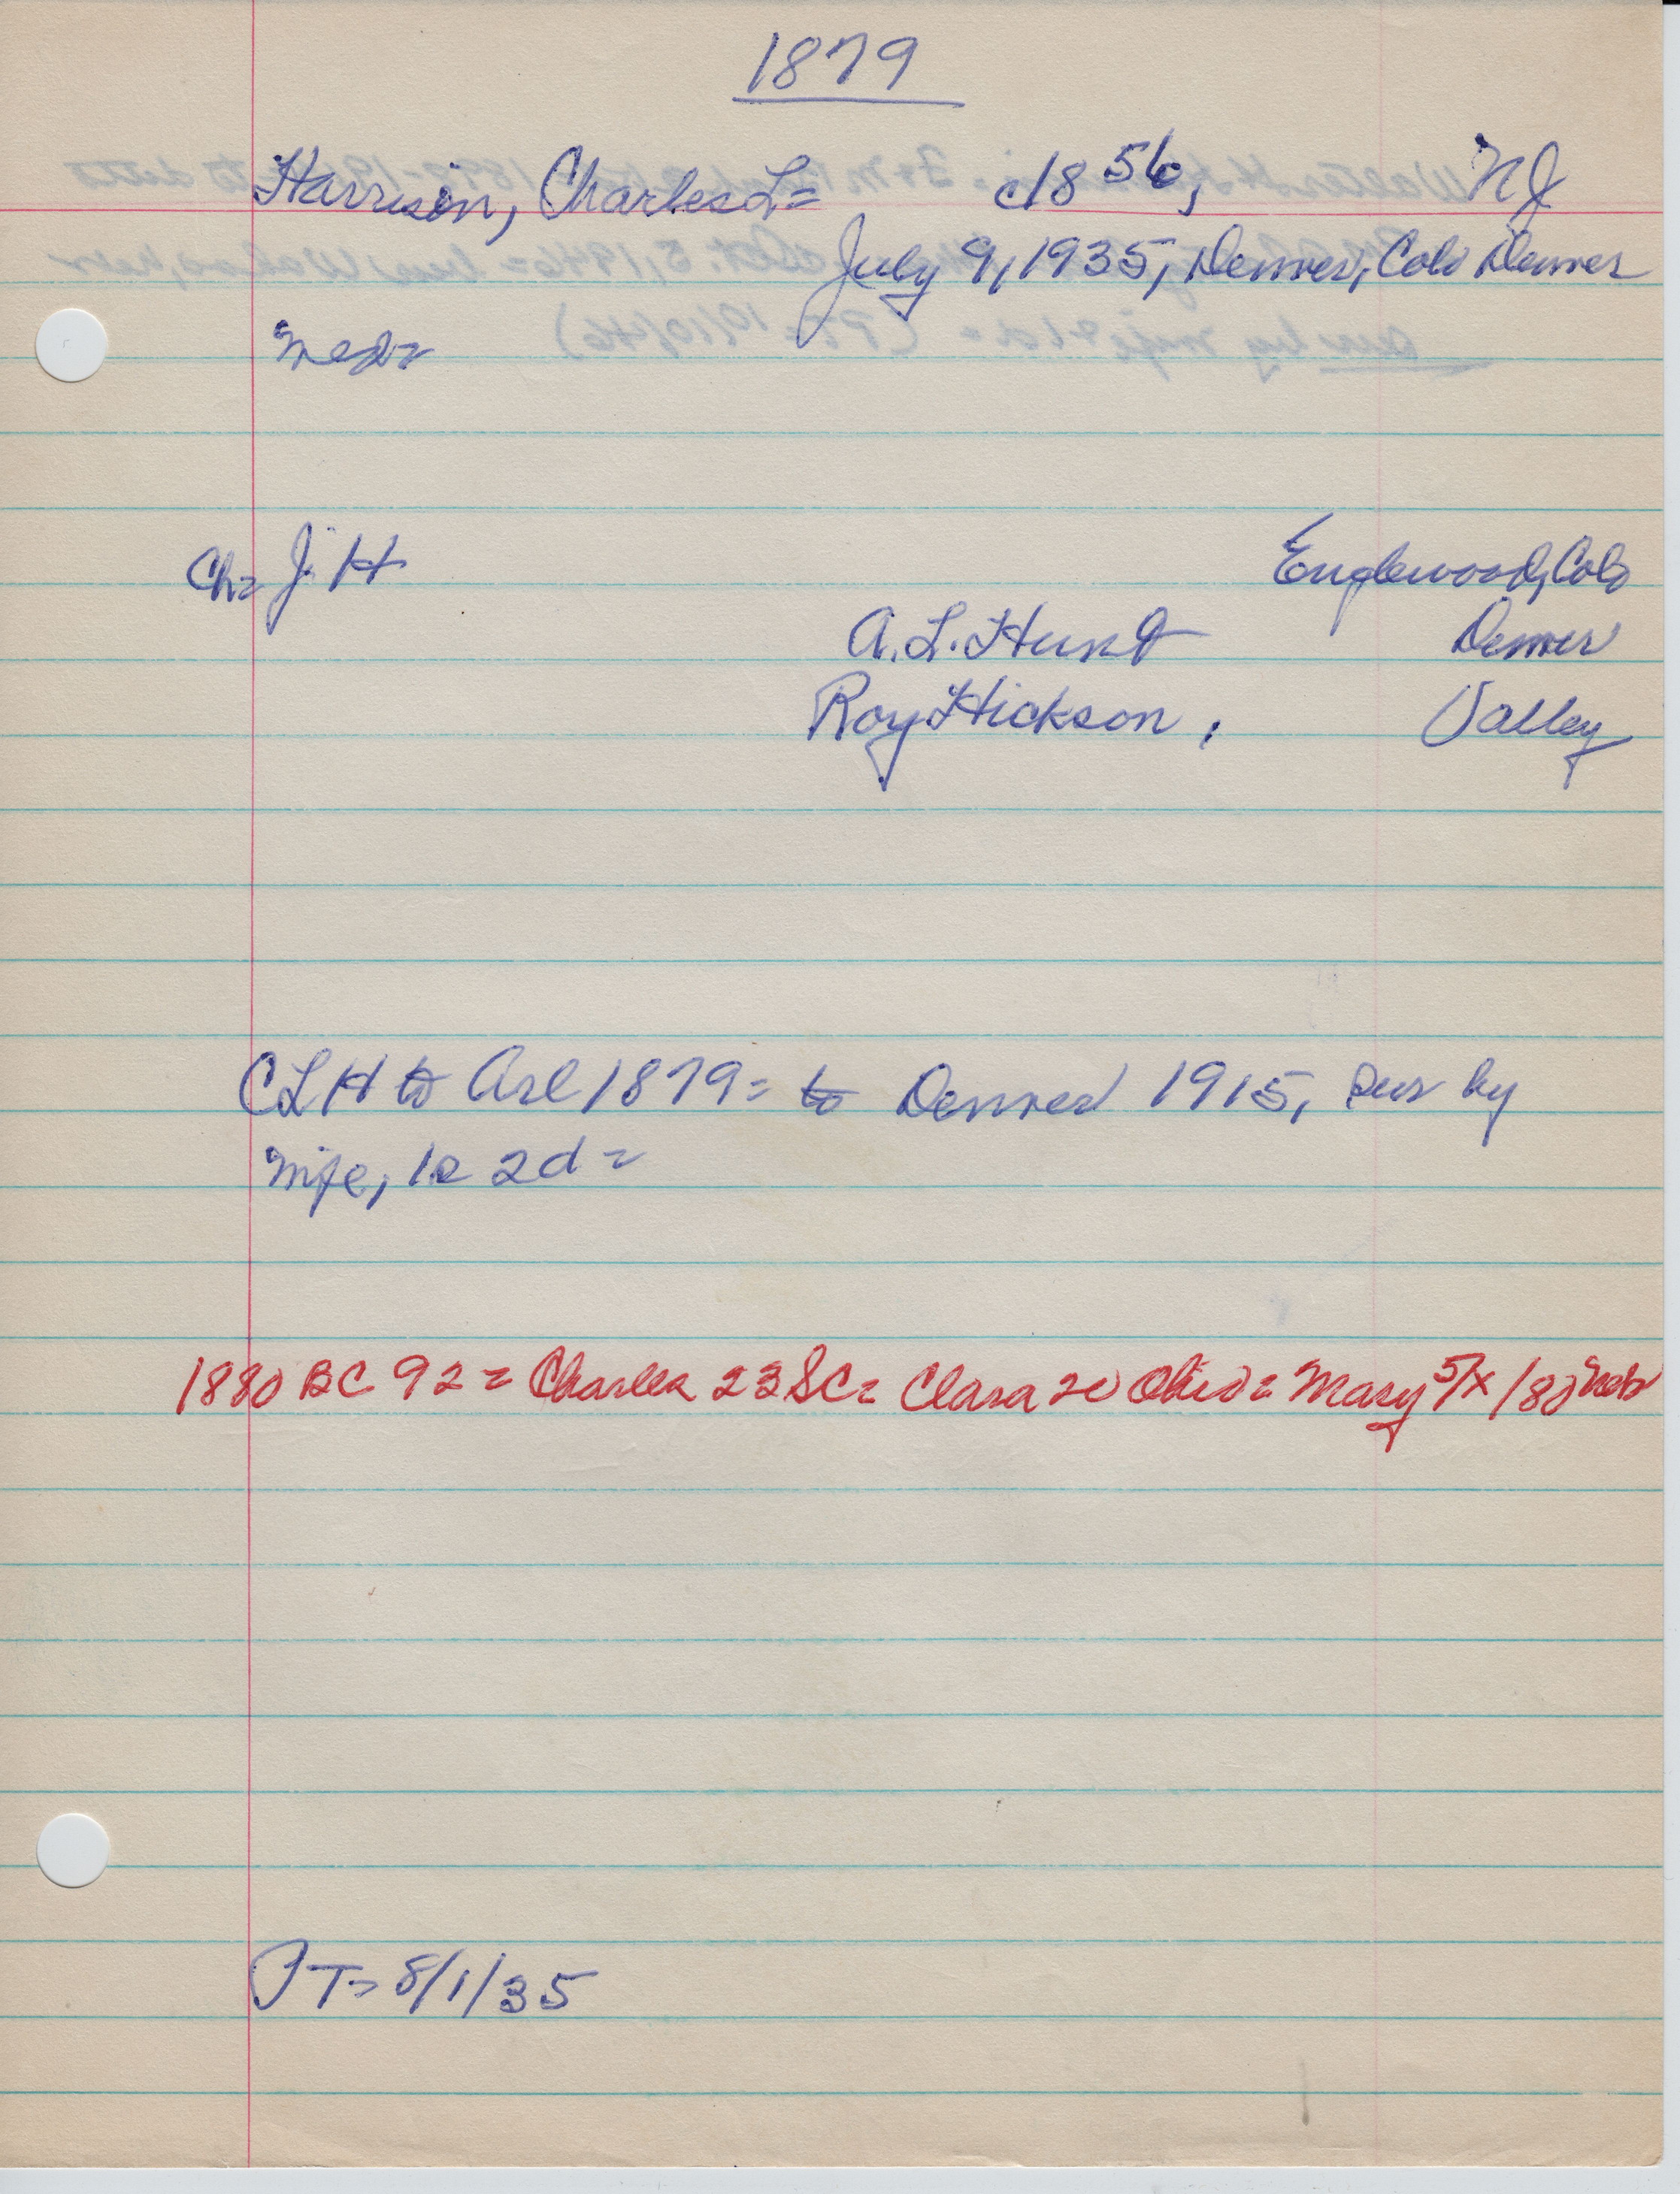 1879
Harrison, Charles L= c1856, NJ
July 9, 1935, Denver, Colo Denver
Ch= J. H Englewood, Colo
A. L. Hunt Denver
Roy Hickson, Valley
CLH to Arl 1879= to Denver 1915, sur by
wife, 1s 2d=
1880 BC 92= Charles 23 SC= Clara 20 Ohio= Mary 5/x/80 Neb
PT= 8/1/35